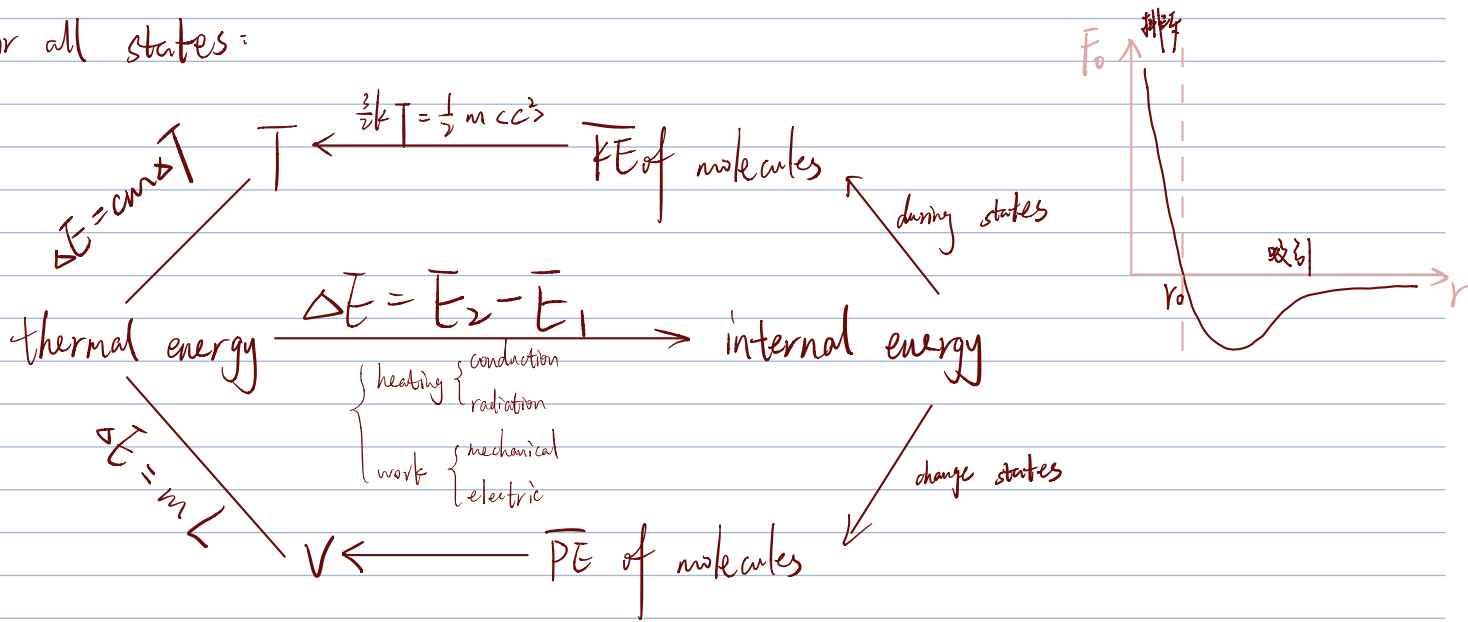 r all states:
3/2 kT = 1/2 m<c²>
T
K̅E̅ of molecules
ΔE = cmΔT
during states
ΔE = E₂ - E₁
thermal energy
internal energy
heating { conduction
radiation
work { mechanical
electric
ΔE = mL
change states
V
P̅E̅ of molecules
排斥
F₀
吸引
r₀
r